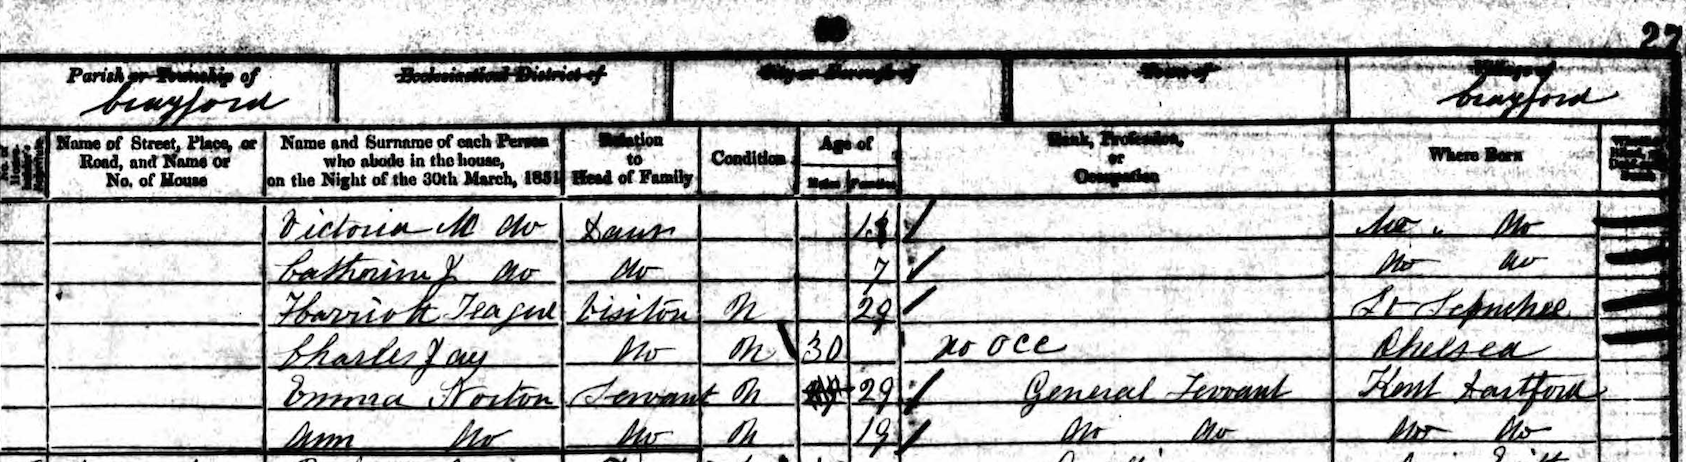 27
Parish or Township of Ecclesiastical District of City or Borough of Town of Village of
Crayford Crayford
Name of Street, Place, or Road, and Name or No. of House Name and Surname of each Person who abode in the house, on the Night of the 30th March, 1851 Relation to Head of Family Condition Age of Males Females Rank, Profession, or Occupation Where Born
Victoria M Do Daur 11 Do
Catherine J Do Do 7 Do Do
Harriott Teague Visitor 29 St Sepulchre
Charles Jay Do 30 no occ Chelsea
Emma Norton Servant 29 General Servant Kent Dartford
Ann Do Do 19 Do Do Do Do